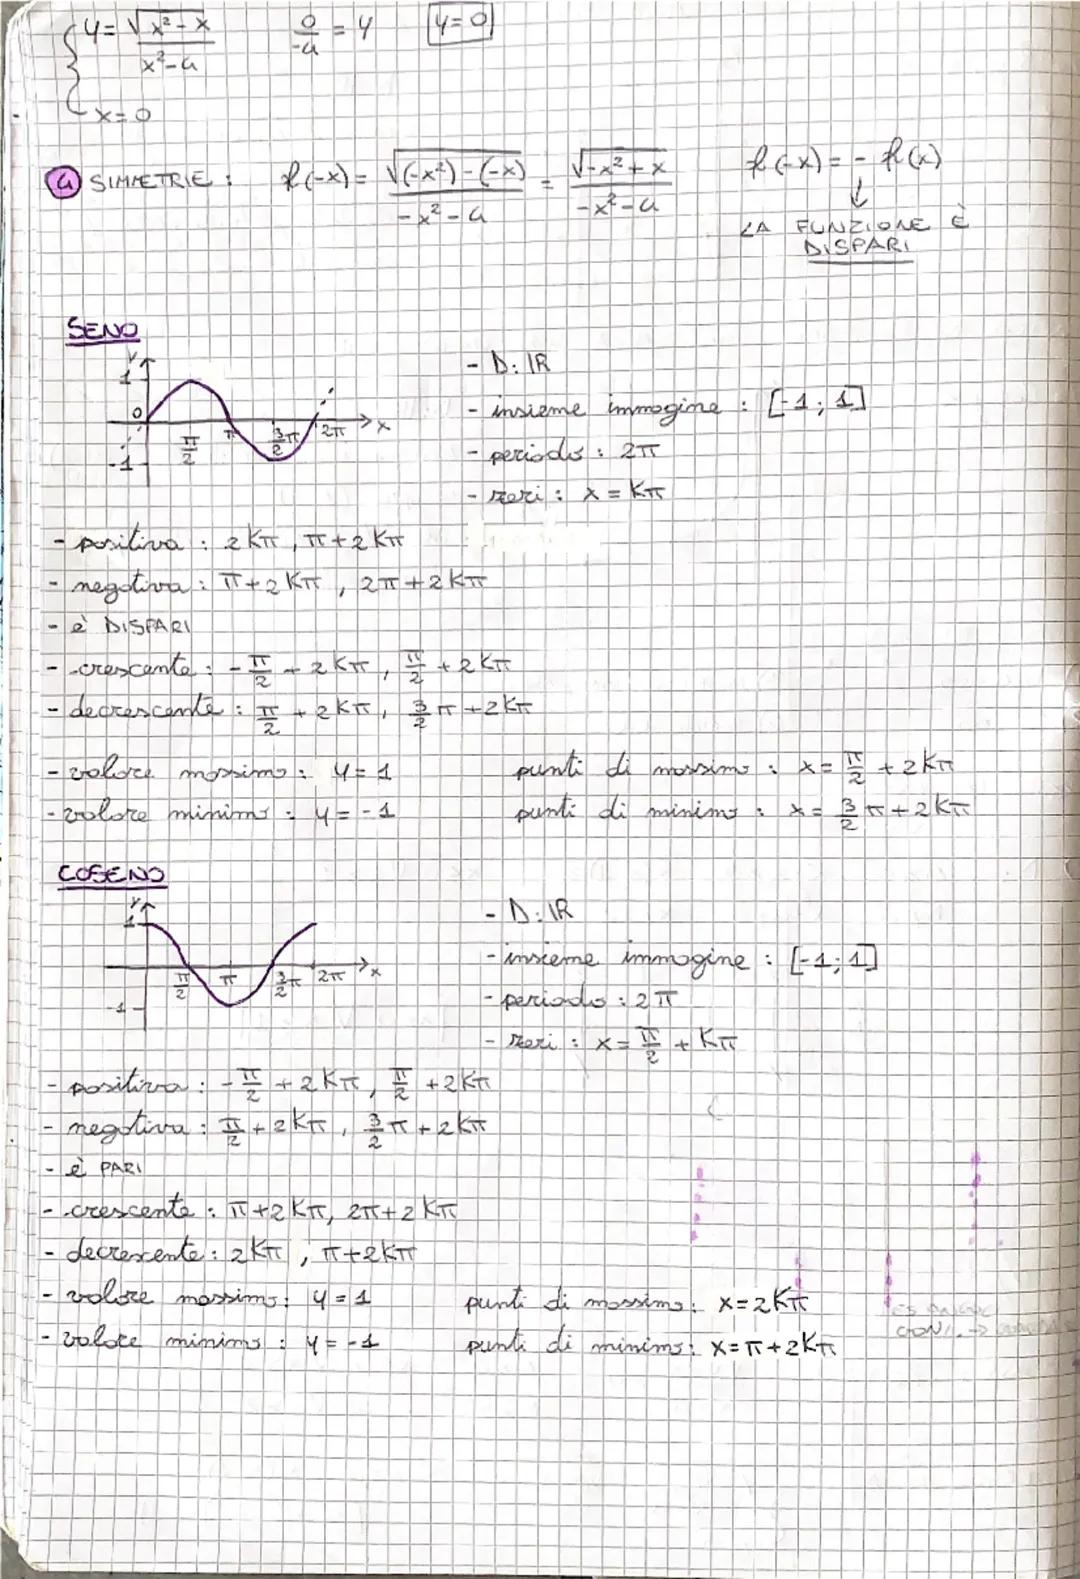 y = √x²-x / x²-4   0/-4 = y   y=0
x=0
4 SIMMETRIE : f(-x) = √(-x²)-(-x) / -x²-4 = √-x²+x / -x²-4   f(-x) = - f(x)
↓
LA FUNZIONE È
DISPARI
SENO
y
1
0
π/2 π 3/2π 2π x
-1
- D: IR
- insieme immagine : [-1; 1]
- periodo : 2π
- zeri : x = Kπ
- positiva : 2Kπ, π+2Kπ
- negativa : π+2Kπ, 2π+2Kπ
- è DISPARI
- crescente : -π/2 + 2Kπ, π/2 + 2Kπ
- decrescente : π/2 + 2Kπ, 3/2π+2Kπ
- valore massimo : y = 1   punti di massimo : x = π/2 + 2Kπ
- valore minimo : y = -1   punti di minimo : x = 3/2π+2Kπ
COSENO
y
1
π/2 π 3/2π 2π x
-1
- D: IR
- insieme immagine : [-1; 1]
- periodo : 2π
- zeri : x = π/2 + Kπ
- positiva : -π/2 + 2Kπ, π/2 + 2Kπ
- negativa : π/2 + 2Kπ, 3/2π + 2Kπ
- è PARI
- crescente : π+2Kπ, 2π+2Kπ
- decrescente : 2Kπ, π+2Kπ
- valore massimo : y = 1   punti di massimo : x=2Kπ
- valore minimo : y = -1   punti di minimo : x=π+2Kπ